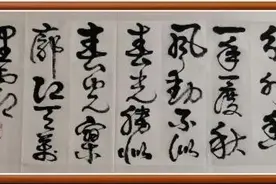 分外香
一年一度秋
风劲不似
春光胜似
春光寥
廓江天万
里霜